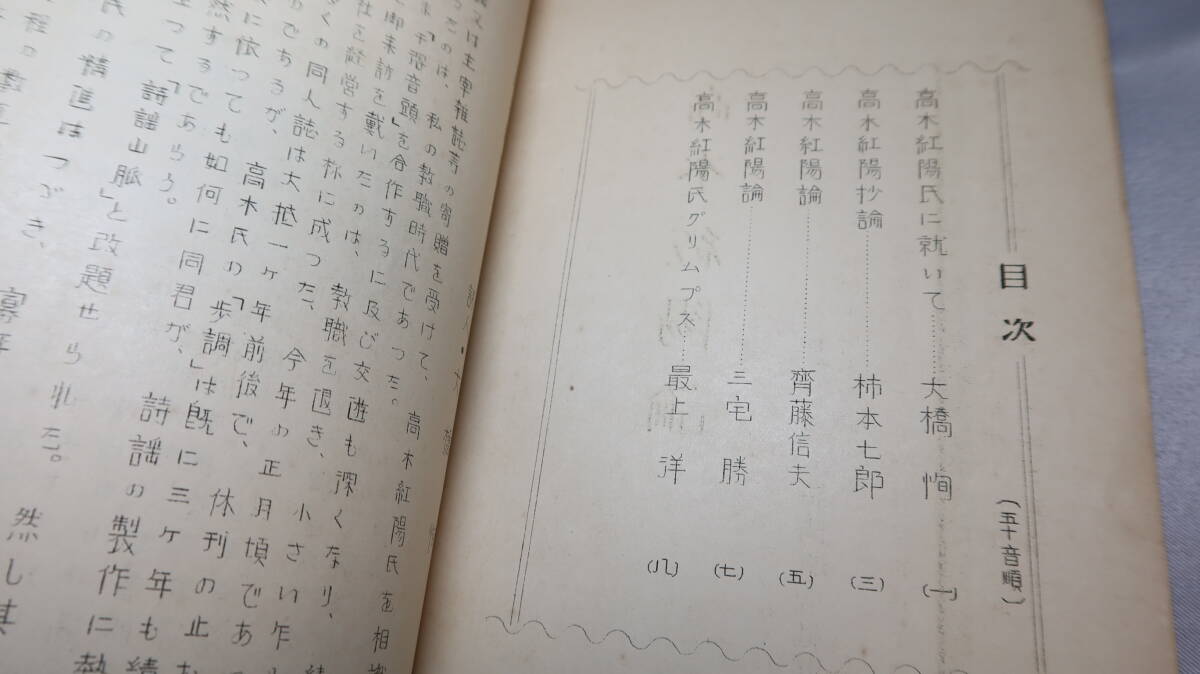 目次
(五十音順)
高木紅陽氏に就いて……大橋恂(一)
高木紅陽抄論……柿本七郎(三)
高木紅陽論……齊藤信夫(五)
高木紅陽論……三宅勝(七)
高木紅陽氏グリムプス…最上洋(八)
又は主宰雑誌等の寄贈を受けて、高木紅陽氏を相
ったのは、私の教職時代であった。
を合作するに及び交遊も深くなり、
御来訪を戴いたのは、教職を退き、小さい乍
社を経営する様に成った、今年の正月頃であ
くの同人誌は大抵一ヶ年前後で、休刊の止む
のであるが、高木氏の「歩調」は既に三ヶ年も続
に依っても如何に同君が、詩謡の製作に熱
然するであらう。
って「詩謡山脈」と改題せられた。然し其
氏の精進はつづき、
程の